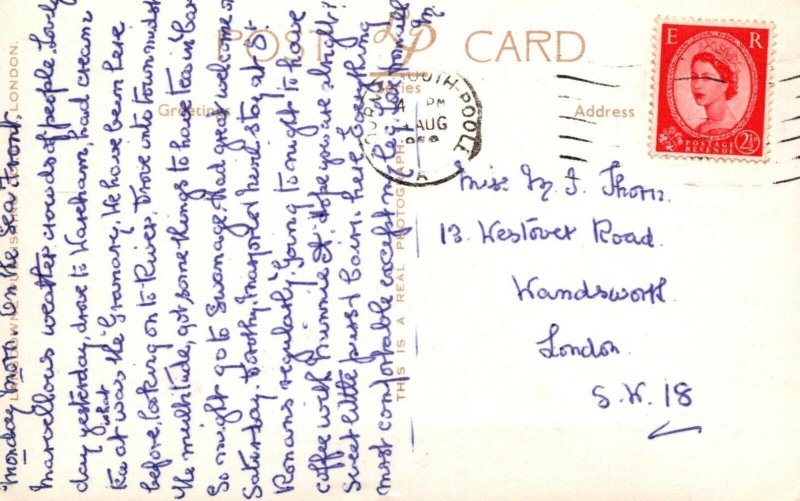 POST CARD
LP
Series
Greetings
Address
THIS IS A REAL PHOTOGRAPH
LONDON.
E R
POSTAGE
REVENUE
2½
BOURNEMOUTH-POOLE
PM
AUG
A
Monday morn. On the Sea Front.
Marvellous weather, crowds of people. Lovely
day yesterday, drove to Wareham, had cream
tea at what was the "Granary". We have been here
before, looking on to River. Drove into town midst
the multitude, got some things to have tea in car
so might go to Swanage. Had great welcome on
Saturday. Dorothy, Marjorie & Neville stay at St.
Ronans regularly. Going tonight to have
coffee with Winnie & . Hope you are alright!
Sweet little purse! Bairn here, everything
most comfortable except my leg. Love from all
Miss M. J. Thorn.
13. Westover Road.
Wandsworth.
London.
S.W. 18